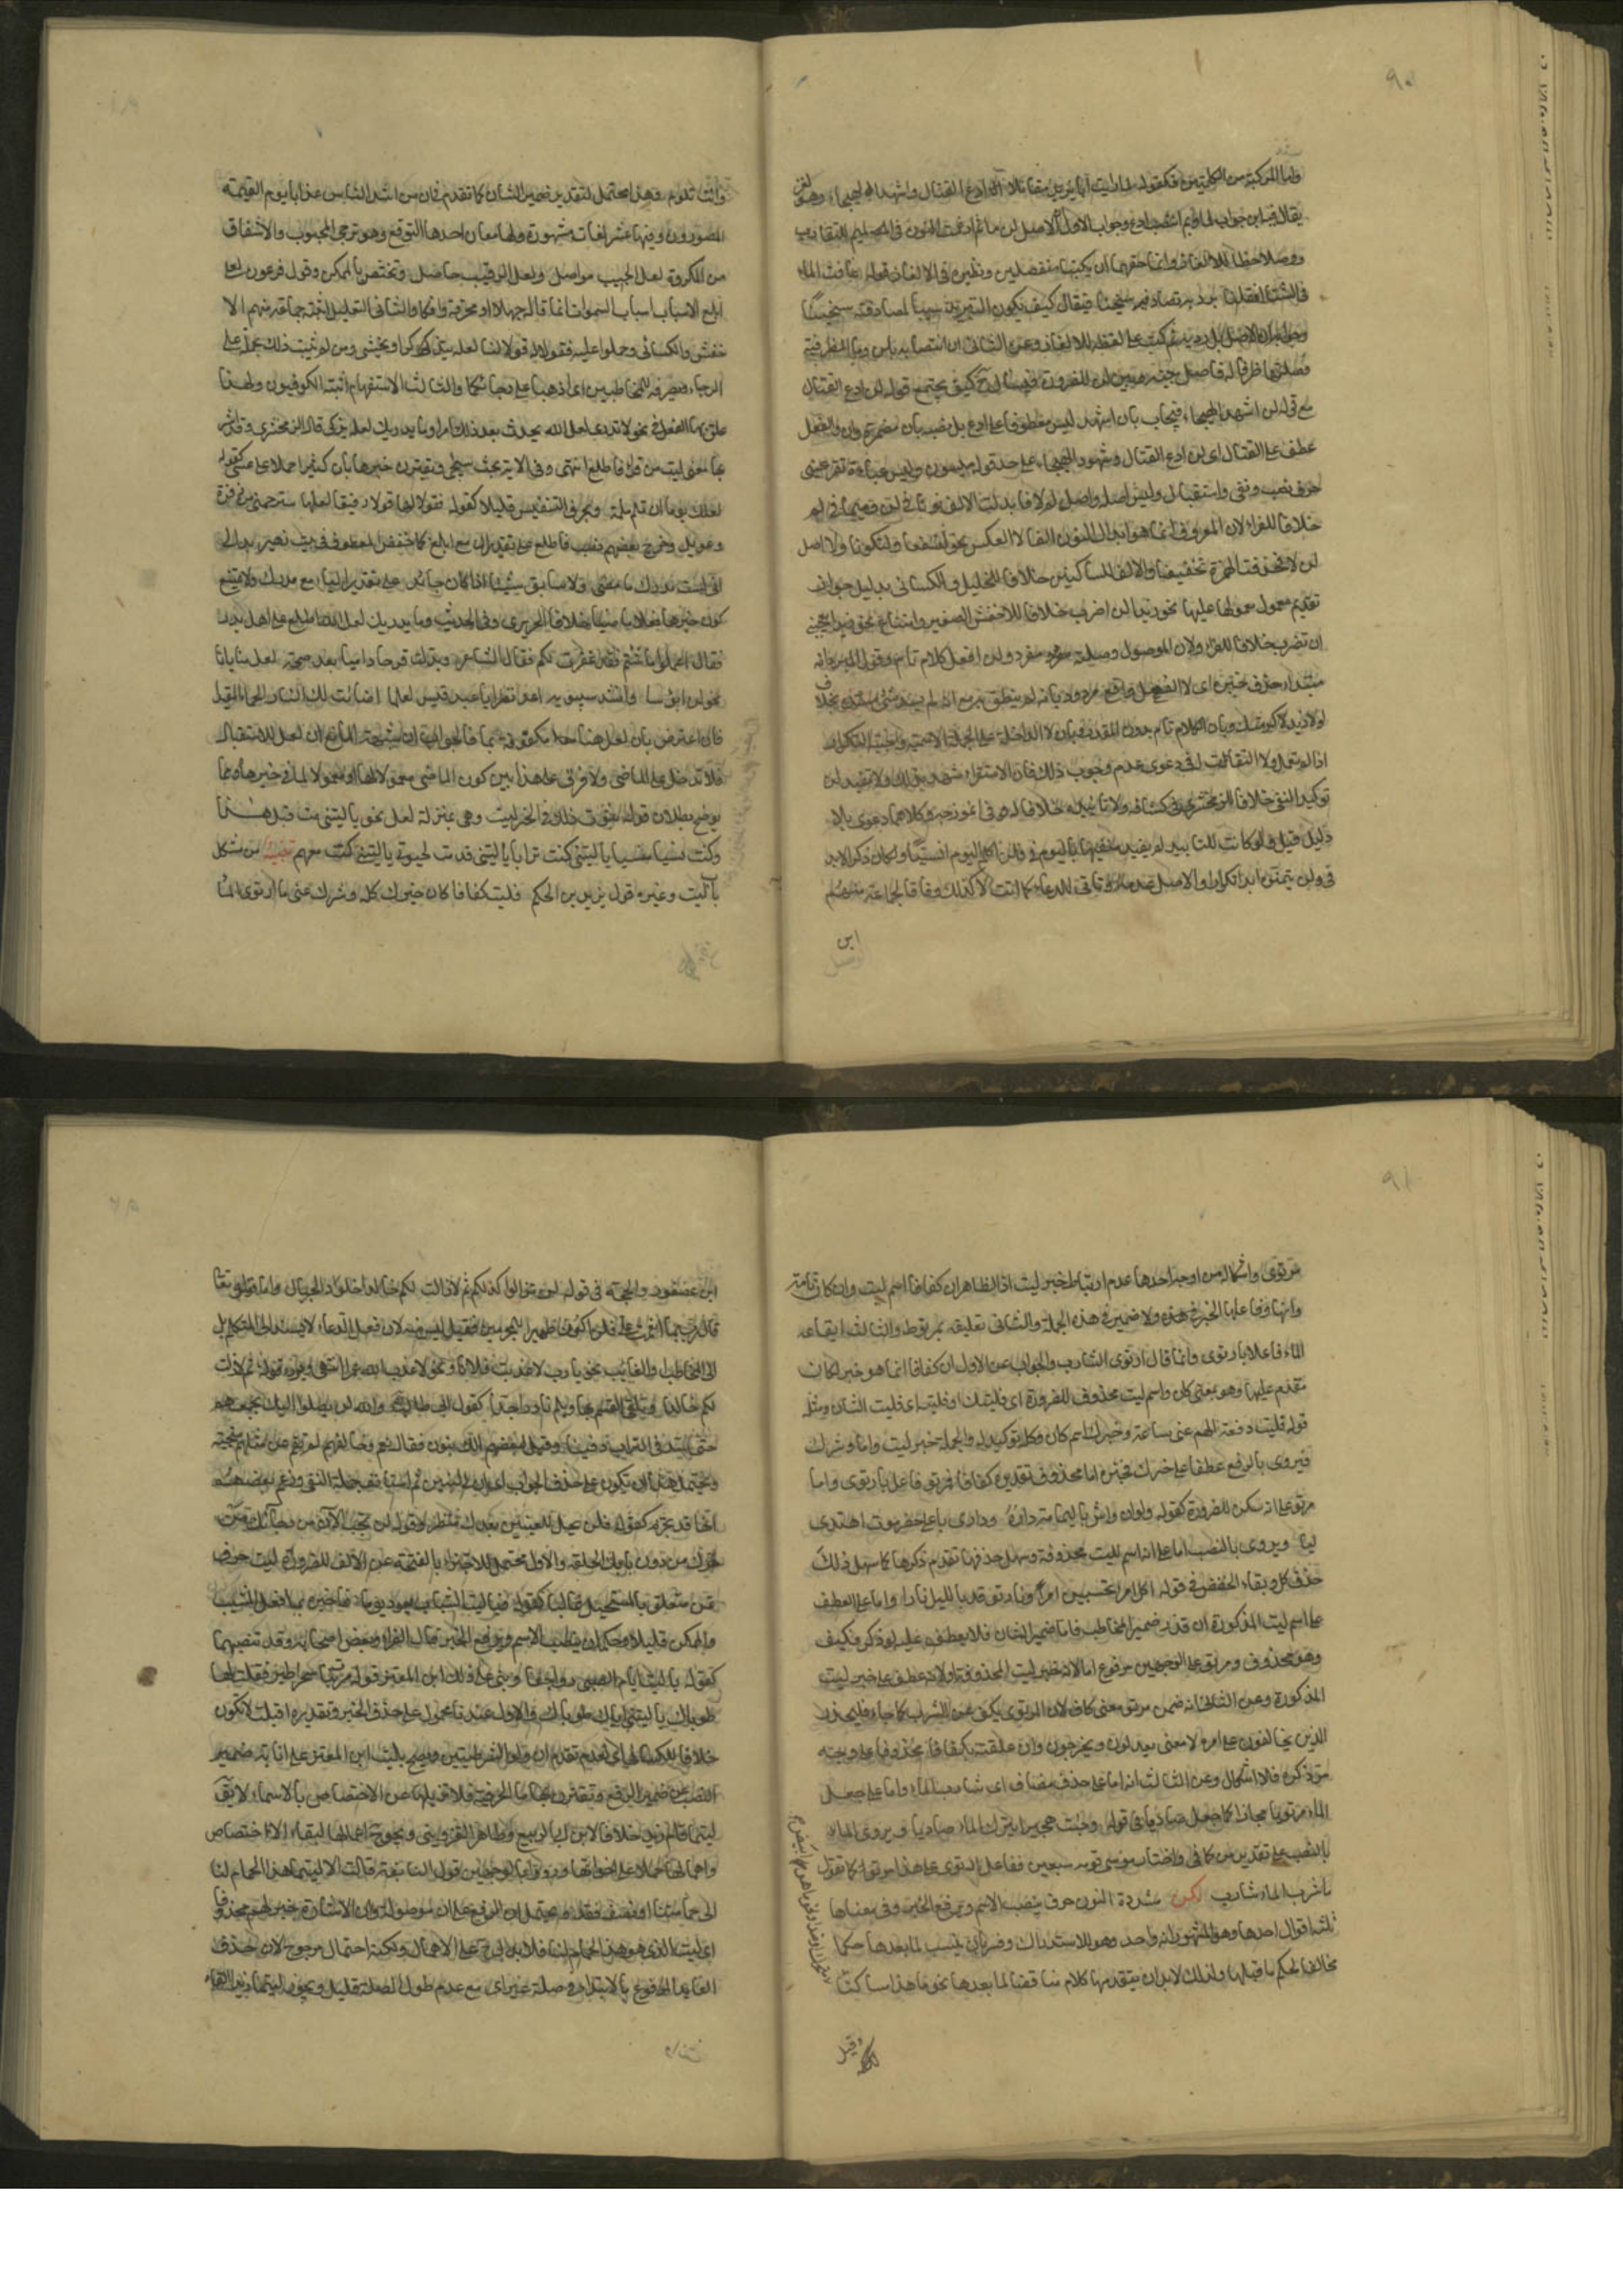 ٩٠
واما المركبة من الكلمتين فكقوله لما رايت ابا يزيد مقاتلا ادع القتال واشهد الهيجاء وهو لغز
يقال فيه اين جواب لما وبم انتصب ادع وجواب الاول ان الاصل لن ما ثم ادغمت النون في الميم للتقارب
ووصلا خطا للالغاز وانما حقهما ان يكتبا منفصلين ونظيره في الالغاز قوله عافت الماء
في الشتا فقلنا برديه تصادفيه سخينا فيقال كيف يكون التبريد سببا لمصادفته سخينا
وجوابه ان الاصل بل رديه ثم كتب على لفظه للالغاز وعن الثاني ان انتصابه بلن وما الظرفية
وصلتها ظرف له فاصل بينه وبين لن للضرورة فيسئال ح كيف يجتمع قوله لن ادع القتال
مع قوله لن اشهد الهيجاء فيجاب بان اشهد ليس معطوفا على ادع بل نصبه بان مضمرة وان والفعل
عطف على القتال اى لن ادع القتال وشهود الهيجاء على حد قوله ولبس عباءة وتقر عينى
حرف نصب ونفى واستقبال وليس اصله واصل لم لا فابدلت الالف نونا في لن وميما في لم
خلافا للفراء لان المعروف انما هو ابدال النون الفا لا العكس نحو لنسفعا وليكونا ولا اصل
لن لا ان فحذفت الهمزة تخفيفا والالف للساكنين خلافا للخليل والكسائى بدليل جواز
تقديم معمول معمولها عليها نحو زيدا لن اضرب خلافا للاخفش الصغير وامتناع نحو زيدا يعجبنى
ان تضرب خلافا للفراء ولان الموصول وصلته مفرد ولن افعل كلام تام وقول المبرد انه
مبتدا حذف خبره اى لا الفعل واقع مردود بانه لم ينطق به مع انه لم يسد شئ مسده بخلاف
لولا زيد لاكرمتك وبان الكلام تام بدون المقدر وبان لا الداخلة على الجملة الاسمية واجبة التكرار
اذا لم تعمل ولا التفات له في دعوى عدم وجوب ذلك فان الاستقراء شهد بذلك ولا تفيد لن
توكيد النفى خلافا للزمخشرى في كشافه ولا تابيده خلافا له في انموذجه وكلاهما دعوى بلا
دليل قيل ولو كانت للتابيد لم يقيد منفيها باليوم في فلن اكلم اليوم انسيا ولكان ذكر الابد
في ولن يتمنوه ابدا تكرارا والاصل عدمه وتاتى للدعاء كما اتت لا لذلك وفاقا لجماعة منهم
ابن
وانت تلوم وهذا محتمل لتقدير ضمير الشان كما تقدم في ان من اشد الناس عذابا يوم القيمة
المصورون وفيها عشر لغات مشهورة ولها معان احدها التوقع وهو ترجى المحبوب والاشفاق
من المكروه لعل الحبيب مواصل ولعل الرقيب حاصل وتختص بالممكن وقول فرعون لعلى
ابلغ الاسباب اسباب السموات انما قاله جهلا او مخرقة وافكا والثانى التعليل اثبته جماعة منهم الا
خفش والكسائى وحملوا عليه فقولا له قولا لينا لعله يتذكر او يخشى ومن لم يثبت ذلك يحمله على
الرجاء ويصرفه للمخاطبين اى اذهبا على رجائكما والثالث الاستفهام اثبته الكوفيون ولهذا
علق بها الفعل في نحو لا تدرى لعل الله يحدث بعد ذلك امرا وما يدريك لعله يزكى قال الزمخشرى وقد اشربها
معنى ليت من قرا فاطلع انتهى وفى الاية بحث سيجى ويقترن خبرها بان كثيرا حملا على عسى كقوله
لعلك يوما ان تلم ملمة وبحرف التنفيس قليلا كقوله فقولا لها قولا رفيقا لعلها سترحمنى من زفرة
وعويل وخرج بعضهم نصب فاطلع على تقدير ان مع ابلغ كما خفض المعطوف في بيت زهير بدا لى
انى لست مدرك ما مضى ولا سابق شيئا اذا كان جائيا على تقدير الباء مع مدرك ولا يمتنع
كون خبرها فعلا ماضيا خلافا للحريرى وفى الحديث وما يدريك لعل الله اطلع على اهل بدر
فقال اعملوا ما شئتم فقد غفرت لكم فقال الشاعر وبدلت قرحا داميا بعد صحة لعل منايانا
تحولن ابؤسا وانشد سيبويه اعد نظرا يا عبد قيس لعلما اضائت لك النار الحمار المقيدا
فان اعترض بان لعل هنا مكفوفة بما فالجواب ان شبهة المانع ان لعل للاستقبال
فلا تدخل على الماضى ولا فرق على هذا بين كون الماضى معمولا لها او معمولا لما في خبرها ومما
يوضح بطلان قوله ثبوت ذلك في خبر ليت وهى بمنزلة لعل نحو يا ليتنى مت قبل هذا
وكنت نسيا منسيا يا ليتنى كنت ترابا يا ليتنى قدمت لحيوتى يا ليتنى كنت معهم تنبيه من مشكل
باب ليت وغيره قول يزيد بن الحكم فليت كفافا كان خيرك كله وشرك عنى ما ارتوى الماء
٩١
مرتوى واشكاله من اوجه احدها عدم ارتباط خبر ليت اذ الظاهر ان كفافا اسم ليت وان كان تامة
وانها وفاعلها الخبر ولا ضمير في هذه الجملة والثانى تعليقه بمرتو والثالث ايقاعه
الماء فاعلا بارتوى وانما قال ارتوى الشارب والجواب عن الاول ان كفافا انما هو خبر لكان
مقدم عليها وهو بمعنى كاف واسم ليت محذوف للضرورة اى فليتك او فليته اى فليت الشان ومثله
قوله فليت دفعت الهم عنى ساعة وخيرك اسم كان وكله توكيد له والجملة خبر ليت واما وشرك
فيروى بالرفع عطفا على خيرك فخبره اما محذوف تقديره كفافا فمرتو فاعل بارتوى واما
مرتو على انه سكن للضرورة كقوله ولو ان واش باليمامة داره ودارى باعلى حضرموت اهتدى
ليا ويروى بالنصب اما على انه اسم لليت محذوفة وسهل حذفها تقدم ذكرها كما سهل ذلك
حذف كل وبقاء الخفض في قوله اكل امرء تحسبين امرأ ونار توقد بالليل نارا واما على العطف
على اسم ليت المذكورة ان قدر ضمير المخاطب فاما ضمير الشان فلا يعطف عليه لو ذكر فكيف
وهو محذوف ومرتو على الوجهين مرفوع اما لانه خبر ليت المحذوفة او لانه عطف على خبر ليت
المذكورة وعن الثانى انه ضمن مرتو معنى كاف لان المرتوى يكف عن الشرب كما جاء فليحذر
الذين يخالفون عن امره لان معنى يعدلون ويخرجون وان علقته بكفافا محذوفا على وجه
مر ذكره فلا اشكال وعن الثالث انه اما على حذف مضاف اى شارب الماء واما على جعل
الماء مرتويا مجازا كما جعل صاديا في قوله وجبت هجيرا يترك الماء صاديا ويروى الماء
بالنصب على تقدير من كما في واختار موسى قومه سبعين ففاعل ارتوى على هذا مرتو كما تقول
ما شرب الماء شارب لكن مشددة النون حرف ينصب الاسم ويرفع الخبر وفى معناها
ثلثة اقوال احدها وهو المشهور انه واحد وهو الاستدراك وفسر بان ينسب لما بعدها حكما
مخالفا لحكم ما قبلها ولذلك لا بد ان يتقدمها كلام مناقض لما بعدها نحو ما هذا ساكنا
وقيل
ابن عصفور والحجة في قوله لن تزالوا كذلكم ثم لا زلت لكم خالدا خلود الجبال واما قوله تعالى
قال رب بما انعمت على فلن اكون ظهيرا للمجرمين فقيل ليس منه لان فعل الدعاء لا يسند الى المتكلم بل
الى المخاطب والغائب نحو يا رب لا عذبت فلانا ونحو لا عذب الله عمرا انتهى ويرده قوله ثم لا زلت
لكم خالدا وتلقى القسم بها وبلم نادر جدا كقول ابى طالب والله لن يصلوا اليك بجمعهم
حتى اوسد في التراب دفينا وقيل لبعضهم الك بنون فقال نعم وخالقهم لم تقم عن مثلهم منجبة
ويحتمل هذا ان يكون على حذف الجواب اى ان لى لبنين ثم استانف جملة النفى وزعم بعضهم
انها قد تجزم كقوله فلن يحل للعينين بعدك منظر وقوله لن يخب الآن من رجائك من
حرك من دون بابك الحلقة والاول محتمل للاجتزاء بالفتحة عن الالف للضرورة ليت حرف
تمن يتعلق بالمستحيل غالبا كقوله فيا ليت الشباب يعود يوما فاخبره بما فعل المشيب
وبالممكن قليلا وحكمه ان ينصب الاسم ويرفع الخبر قال الفراء وبعض اصحابه وقد تنصبهما
كقوله يا ليت ايام الصبى رواجعا وبنى على ذلك ابن المعتز قوله مرت بنا سحرا طير فقلت لها
طوباك يا ليتنى اياك طوباك والاول عندنا محمول على حذف الخبر وتقديره اقبلت لا تكون
خلافا للكسائى لعدم تقدم ان ولو الشرطيتين ويصح بيت ابن المعتز على انابة ضمير
النصب عن ضمير الرفع وتقترن بها ما الحرفية فلا تزيلها عن الاختصاص بالاسماء لا يقال
ليتما قام زيد خلافا لابن ابى الربيع وطاهر القزوينى ويجوز ح اعمالها لبقاء الاختصاص
واهمالها حملا على اخواتها ورووا بالوجهين قول النابغة قالت الا ليتما هذا الحمام لنا
الى حمامتنا او نصفه فقد ويحتمل ان الرفع على ان ما موصولة وان الاشارة خبر لهو محذوفا
اى ليت الذى هو هذا الحمام لنا فلا يدل ح على الاهمال ولكنه احتمال مرجوح لان حذف
العايد المرفوع بالابتداء في صلة غير اى مع عدم طول الصلة قليل ويجوز ليتما زيدا القاه